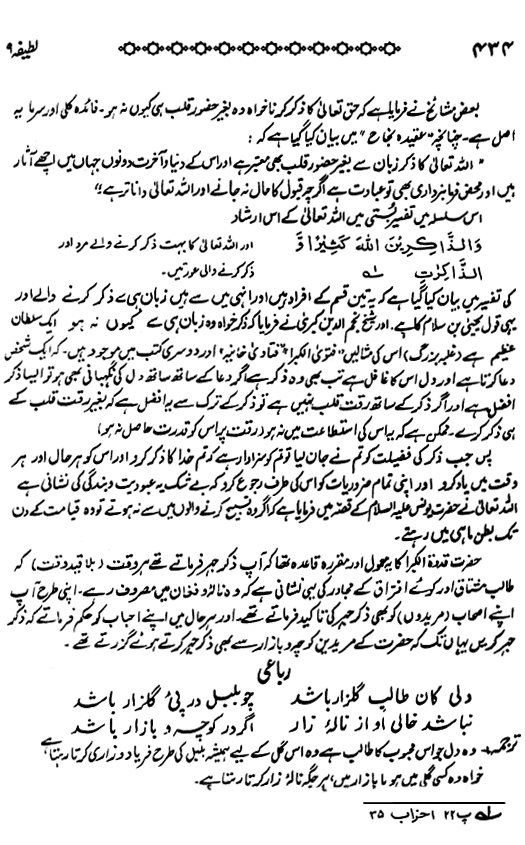 ۴۳۴ لطیفہ ۹
بعض مشائخ نے فرمایا ہے کہ حق تعالیٰ کا ذکر کرنا خواہ وہ بغیر حضور قلب ہی کیوں نہ ہو۔ فائدہ کلی اور سرمایہ
اصل ہے۔ چنانچہ "عقیدہ نجاح" میں بیان کیا گیا ہے کہ :
" اللہ تعالیٰ کا ذکر زبان سے بغیر حضور قلب بھی معتبر ہے اور اس کے دنیا و آخرت دونوں جہاں میں اچھے آثار
ہیں اور محض فرمانبرداری بھی تو عبادت ہے اگرچہ قبول کا حال نہ جانے اور اللہ تعالیٰ دانا تر ہے"
اس سلسلہ میں تفسیر بستی میں اللہ تعالیٰ کے اس ارشاد
وَالذَّاكِرِينَ اللهَ كَثِيرًا وَّ اور اللہ تعالیٰ کا بہت ذکر کرنے والے مرد اور
الذَّاكِرٰتِ لـه ذکر کرنے والی عورتیں۔
کی تفسیر میں بیان کیا گیا ہے کہ یہ تین قسم کے افراد ہیں اور انہی میں سے ہیں زبان ہی سے ذکر کرنے والے اور
یہی قول یحییٰ بن سلام کا ہے۔ اور شیخ نجم الدین کبریٰ نے فرمایا کہ ذکر خواہ وہ زبان ہی سے کیوں نہ ہو ایک سلطان
عظیم ہے (غلبہ بزرگ) اس کی مثالیں "فتویٰ الکبرا" "فتاویٰ خانیہ" اور دوسری کتب میں موجود ہیں۔ کہ ایک شخص
دعا کرتا ہے اور دل اس کا غافل ہے تب بھی وہ ذکر ہے اگر دعا کے ساتھ ساتھ دل کی نگہبانی بھی ہو تو ایسا ذکر
افضل ہے اور اگر ذکر کے ساتھ رقت قلب نہیں ہے تو ذکر کے ترک سے یہ افضل ہے کہ بغیر رقت قلب کے
ہی ذکر کرے۔ ممکن ہے کہ یہ اس کی استطاعت میں نہ ہو (رقت پر اس کو قدرت حاصل نہ ہو)
پس جب ذکر کی فضیلت کو تم نے جان لیا تو تم کو سزاوار ہے کہ تم خدا کا ذکر کرو اور اس کو ہر حال اور ہر
وقت میں یاد کرو اور اپنی تمام ضروریات کو اس کی طرف رجوع کرو کہ بے شک یہ عبودیت و بندگی کی نشانی ہے
اللہ تعالیٰ نے حضرت یونس علیہ السلام کے قصہ میں فرمایا ہے کہ اگر وہ تسبیح کرنے والوں میں سے نہ ہوتے تو وہ قیامت کے دن
تک بطن ماہی میں رہتے۔
حضرت قدوۃ الکبرا کا یہ معمول اور مقررہ قاعدہ تھا کہ آپ ذکر جہر فرماتے تھے ہر وقت (بلا قید وقت) کہ
طالب مشتاق اور کوئے افتراق کے مجاور کی یہی نشانی ہے کہ وہ نالہ و فغان میں مصروف رہے۔ اپنی طرح آپ
اپنے اصحاب (مریدوں) کو بھی ذکر جہر کی تاکید فرماتے تھے۔ اور ہر حال میں اپنے احباب کو حکم فرماتے کہ ذکر
جہر کریں یہاں تک کہ حضرت کے مریدین کوچہ و بازار سے بھی ذکر جہر کرتے ہوئے گزرتے تھے۔
رباعی
دلی کان طالب گلزار باشد چو بلبل در پیٔ گلزار باشد
نباشد خالی او از نالۂ زار اگر در کوچہ و بازار باشد
ترجمہ۔ وہ دل جو اس محبوب کا طالب ہے وہ اس گل کے لیے ہمیشہ بلبل کی طرح فریاد و زاری کرتا رہتا ہے
خواہ وہ کسی گلی میں ہو یا بازار میں، ہر جگہ نالۂ زار کرتا رہتا ہے۔
لـه پ ۲۲ احزاب ۳۵